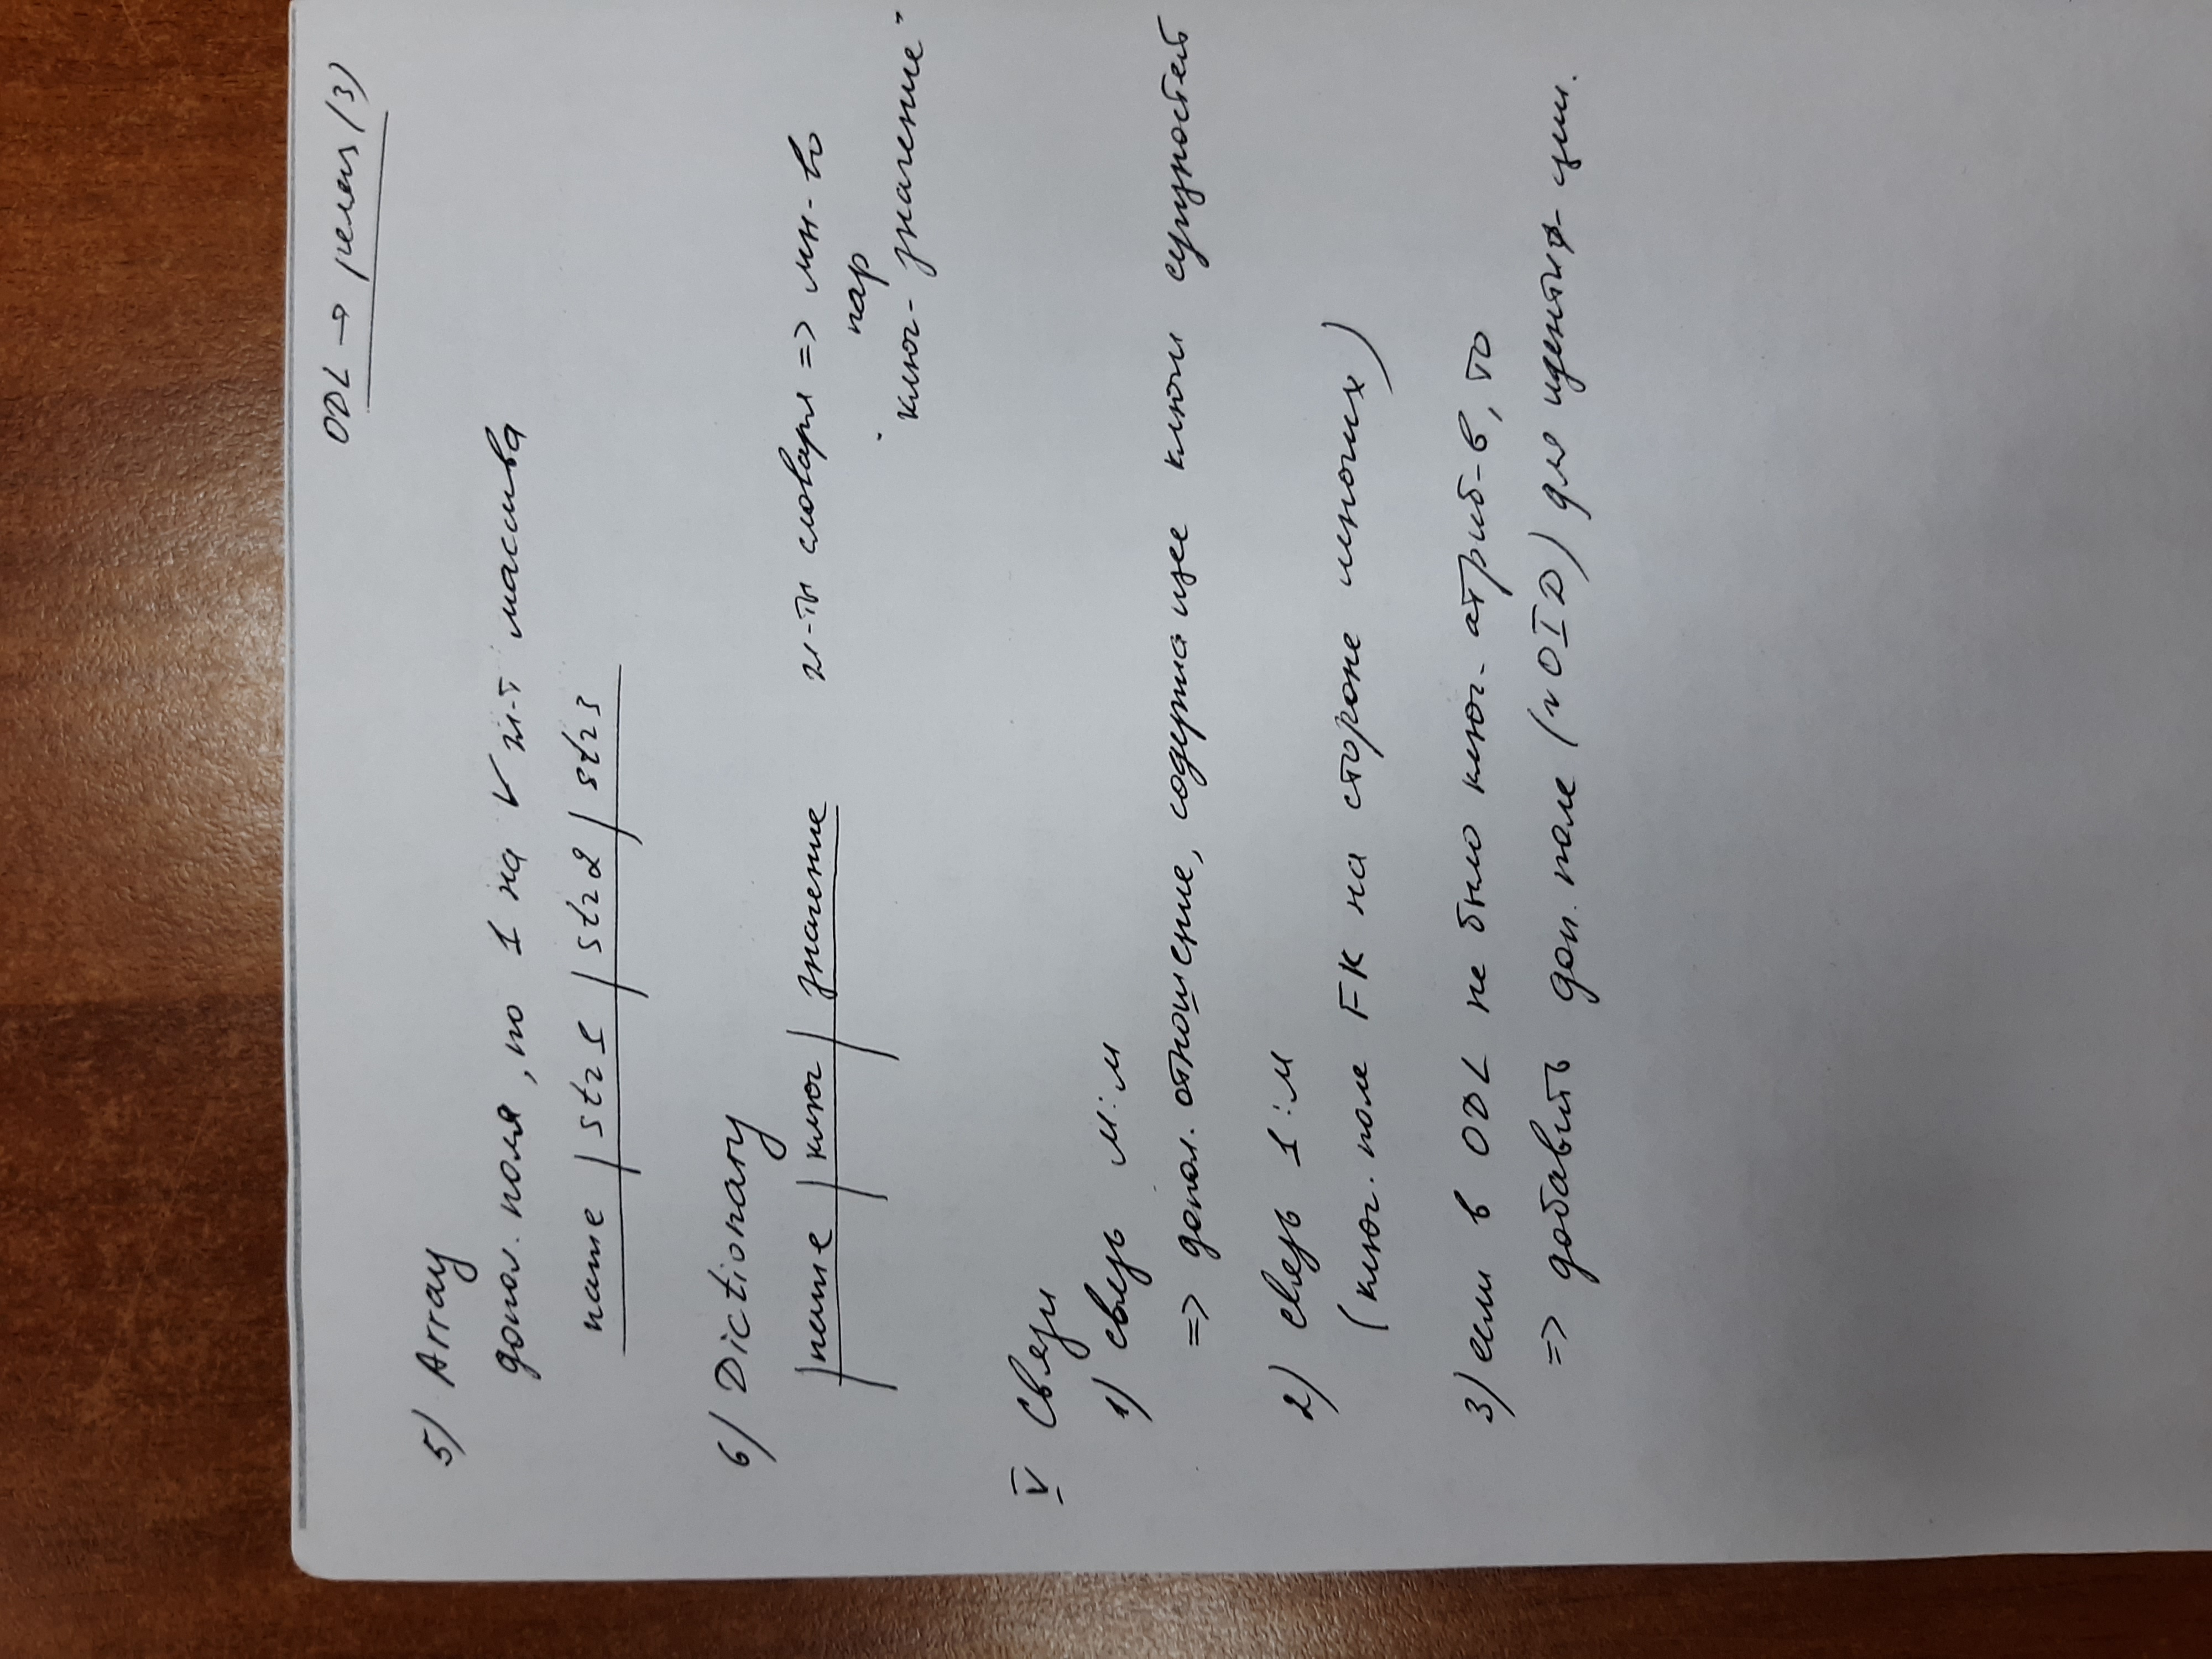 ODL → реляц (3)
5) Array
допол. поля, по 1 на ∀ эл-т массива
name | str1 | str2 | str3
6) Dictionary
| name | ключ | значение
эл-ты словаря => мн-во
пар
"ключ-значение"
V Связи
1) связь м:м
=> допол. отношение, содержащее ключи сущностей
2) связь 1:м
(ключ. поле FK на стороне многих)
3) если в ODL не было ключ. атриб-в, то
=> добавить доп. поле (~OID) для идентиф-ции.